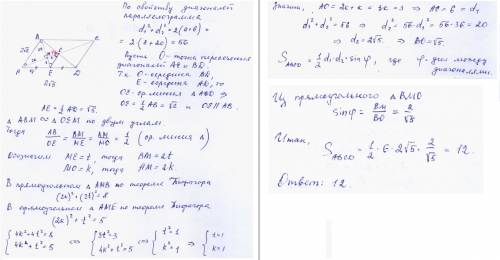 По свойству диагоналей
параллелограмма
d₁² + d₂² = 2(a+b) =
= 2(8+20) = 56
Пусть O - точка пересечения
диагоналей AC и BD.
Т.к. O - середина BD,
E - середина AD, то
OE - ср. линия △ABD ⇒
OE = ½ AB = √2 и OE ∥ AB.
2√2
B
C
A
E
D
2√5
AE = ½ AD = √5.
△ABM ∾ △OEM по двум углам.
Тогда
AB/OE = BM/ME = AM/MO = 2/1 (ср. линия △)
Обозначим ME = t, тогда BM = 2t
MO = k, тогда AM = 2k
В прямоугольном △AMB по теореме Пифагора
(2k)² + (2t)² = 8
В прямоугольном △AME по теореме Пифагора
(2k)² + t² = 5
{4k² + 4t² = 8 4k² + t² = 5 ⇔ {3t² = 3 4k² + t² = 5 ⇔ {t² = 1 k² = 1 ⇒ {t = 1 k = 1
Значит, AO = 2k + k = 3k = 3 ⇒ AC = 6 = d₁
d₁² + d₂² = 56 ⇒ d₂² = 56 - d₁² = 56 - 36 = 20
⇒ d₂ = 2√5. ⇒ BO = √5.
S ABCD = ½ d₁ · d₂ · sin φ, где φ - угол между
диагоналями.
Из прямоугольного △BMO
sin φ = BM/BO = 2/√5
Итак,
S ABCD = ½ · 6 · 2√5 · 2/√5 = 12.
Ответ: 12.